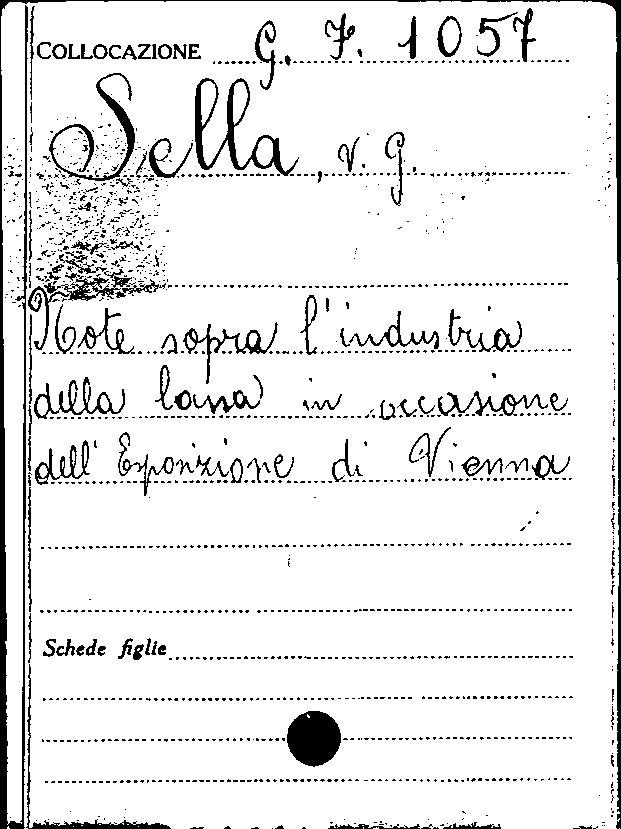 COLLOCAZIONE G. F. 1057
Sella, V. G.
Note sopra l'industria
della lana in occasione
dell'Esposizione di Vienna
Schede figlie